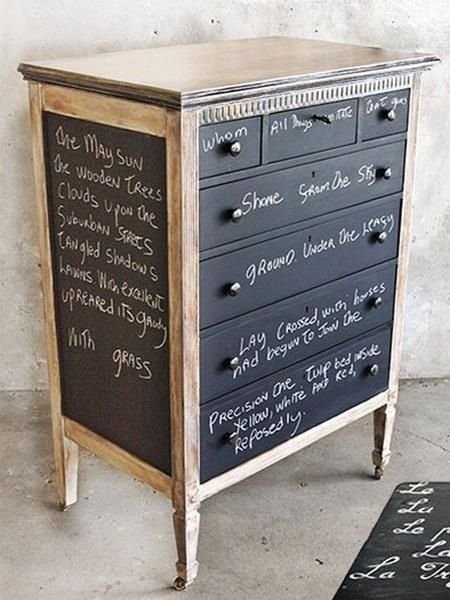 The May Sun
the wooden Trees
Clouds upon the
Suburban Streets
tangled shadows
Lawns. With excellent
upreared its gaudy
With grass
Whom
All Things imitate
that guy
Shone from the Sky
ground. Under the leafy
Lay crossed, with horses
had begun to join the
Precision the tulip bed inside
Yellow, white and red,
reposedly.
Le
La
Le p
La
La Tr